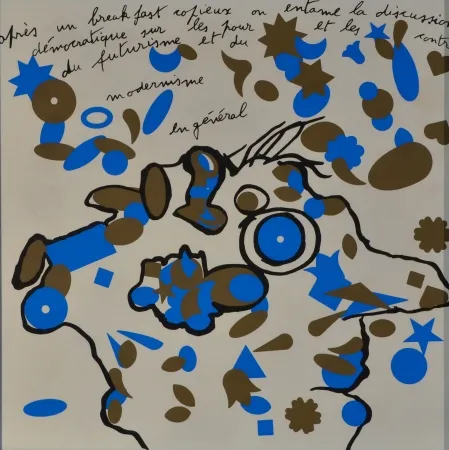 après un breakfast copieux on entame la discussion
démocratique sur les pour et les contre
du futurisme et du
modernisme
en général